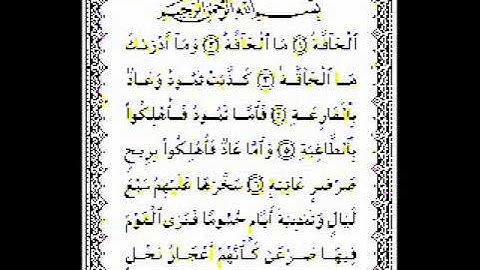 بِسْمِ اللَّهِ الرَّحْمَٰنِ الرَّحِيمِ
ٱلْحَآقَّةُ ١ مَا ٱلْحَآقَّةُ ٢ وَمَآ أَدْرَىٰكَ
مَا ٱلْحَآقَّةُ ٣ كَذَّبَتْ ثَمُودُ وَعَادٌۢ
بِٱلْقَارِعَةِ ٤ فَأَمَّا ثَمُودُ فَأُهْلِكُوا۟
بِٱلطَّاغِيَةِ ٥ وَأَمَّا عَادٌ فَأُهْلِكُوا۟ بِرِيحٍ
صَرْصَرٍ عَاتِيَةٍ ٦ سَخَّرَهَا عَلَيْهِمْ سَبْعَ
لَيَالٍ وَثَمَٰنِيَةَ أَيَّامٍ حُسُومًا فَتَرَى ٱلْقَوْمَ
فِيهَا صَرْعَىٰ كَأَنَّهُمْ أَعْجَازُ نَخْلٍ